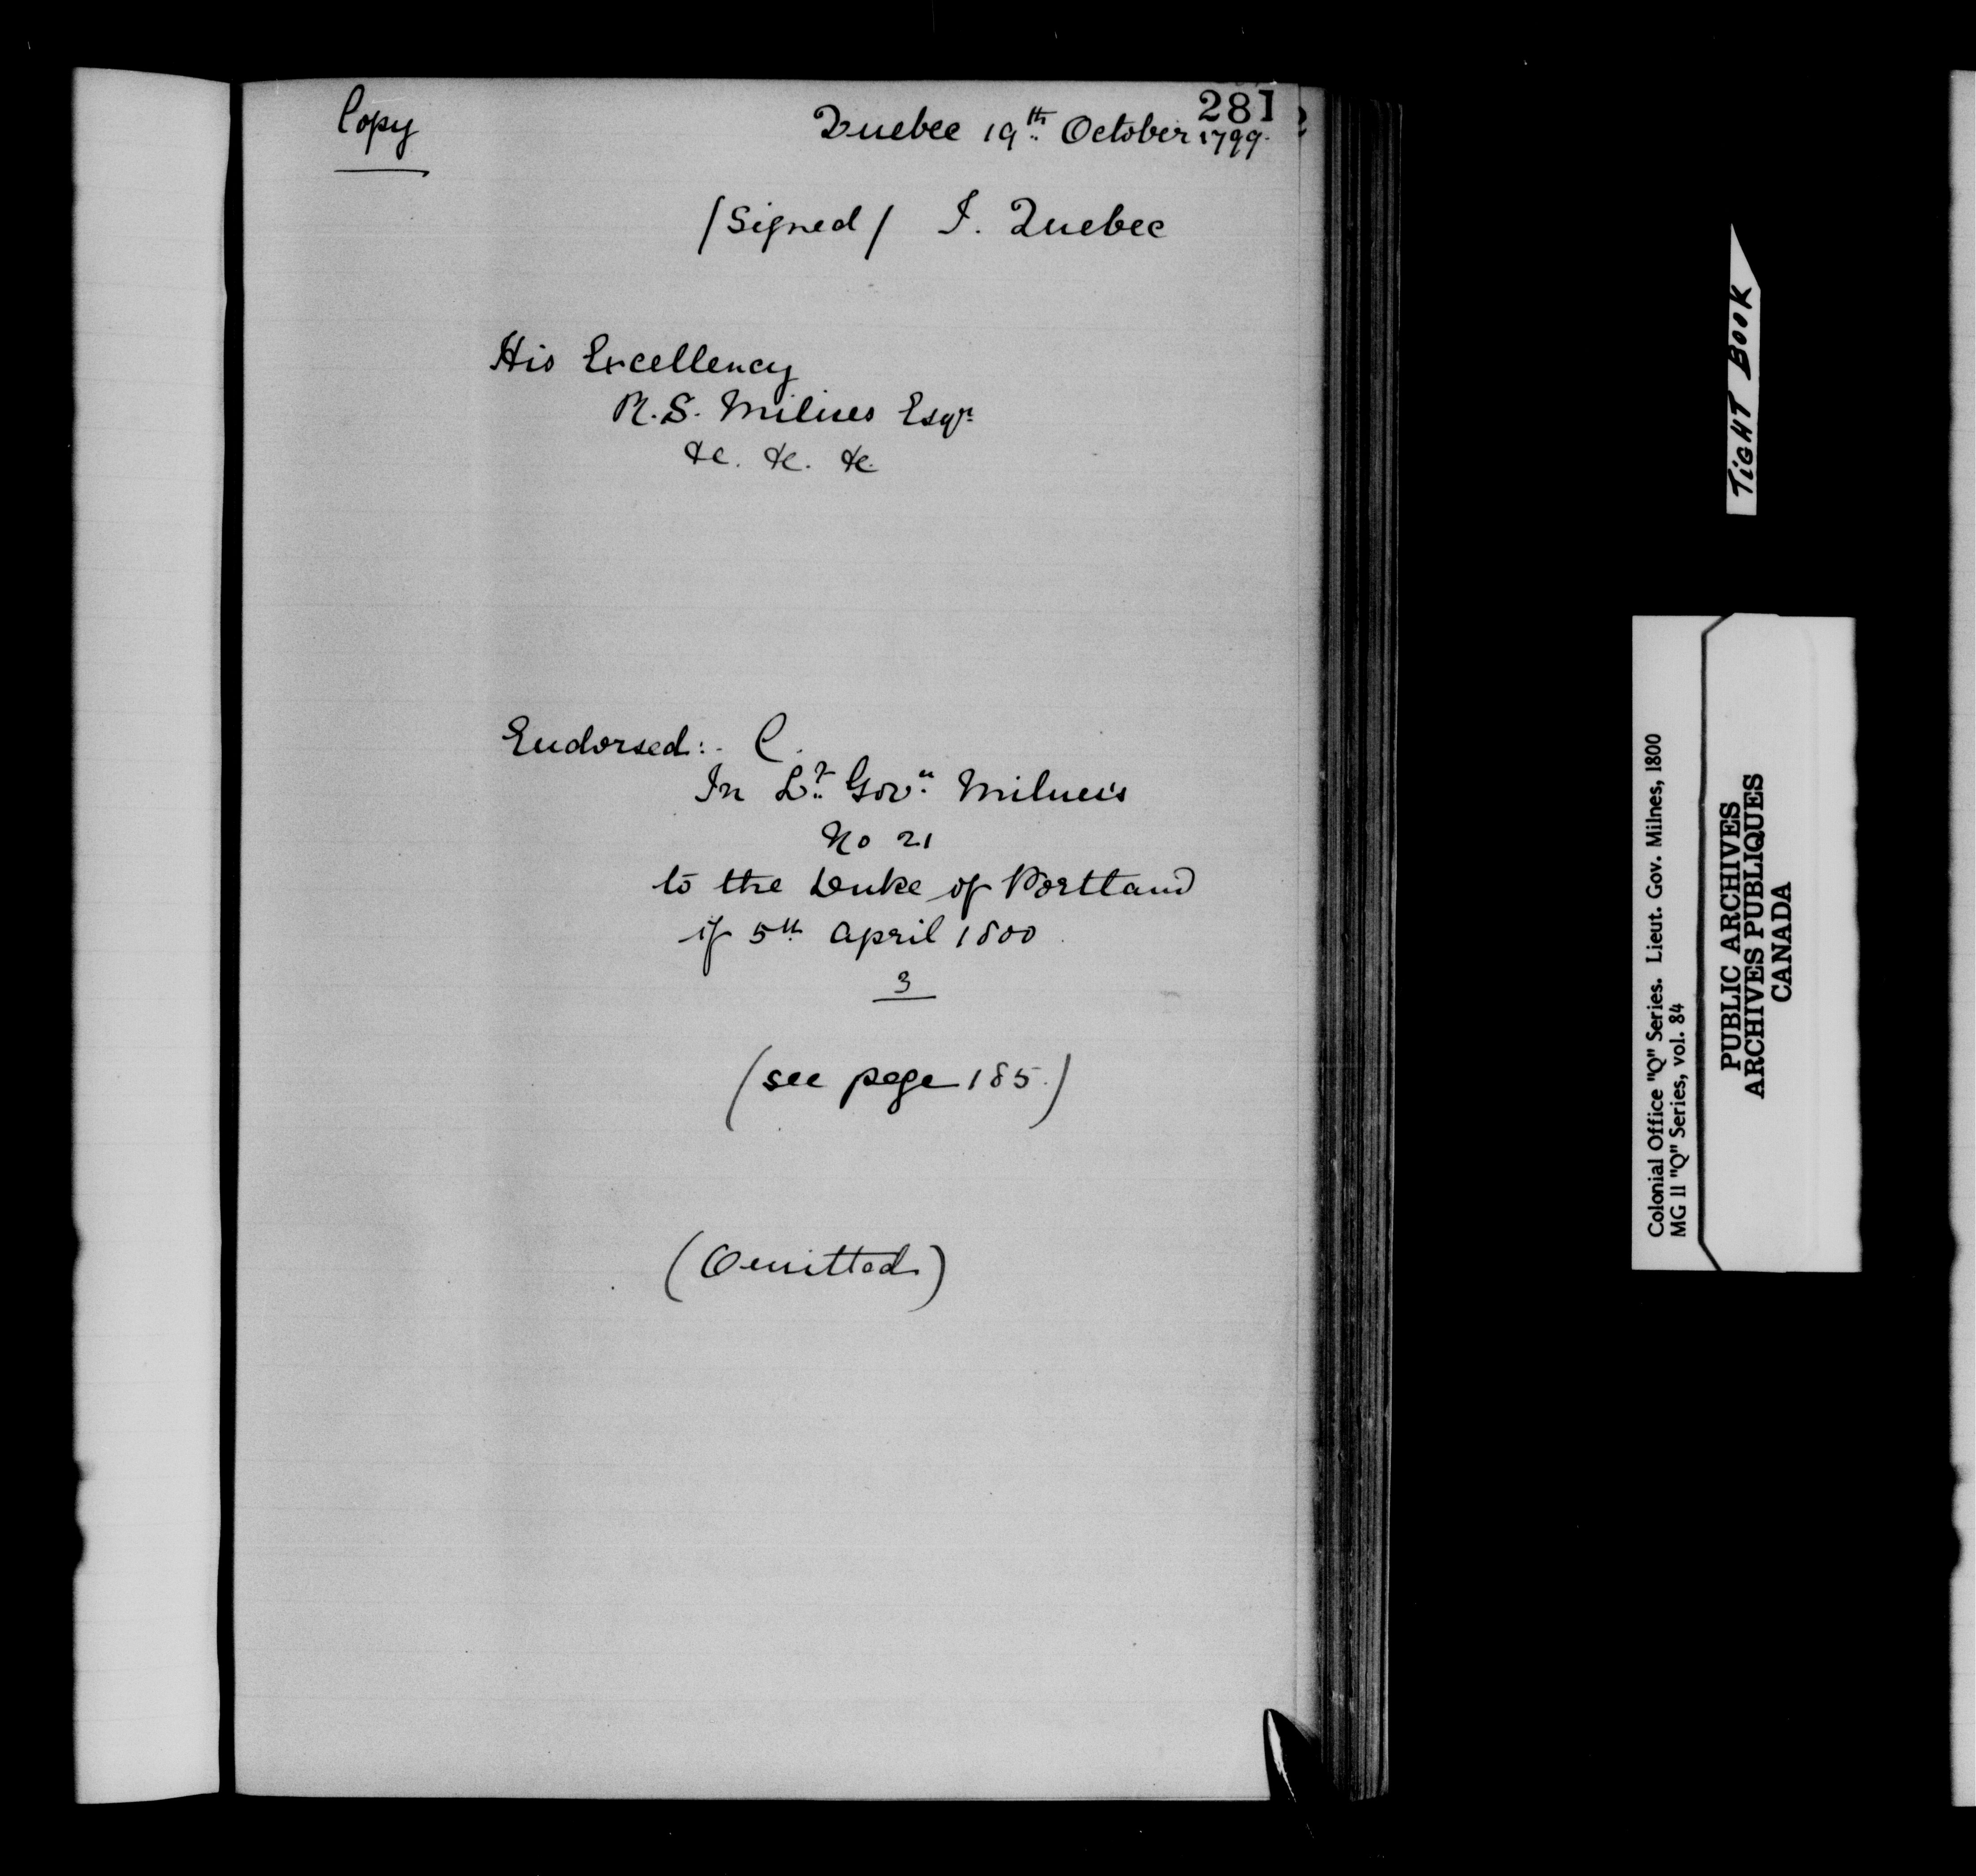 281
Copy
Quebec 19th October 1799.
/Signed/ I. Quebec
His Excellency
R. S. Milnes Esqr.
&c. &c. &c.
Endorsed:- C.
In Lt. Govr. Milnes's
No 21
to the Duke of Portland
of 5th April 1800.
3
(see page 185.)
(Omitted)
TIGHT BOOK
Colonial Office "Q" Series. Lieut. Gov. Milnes, 1800
MG 11 "Q" Series, vol. 84
PUBLIC ARCHIVES
ARCHIVES PUBLIQUES
CANADA